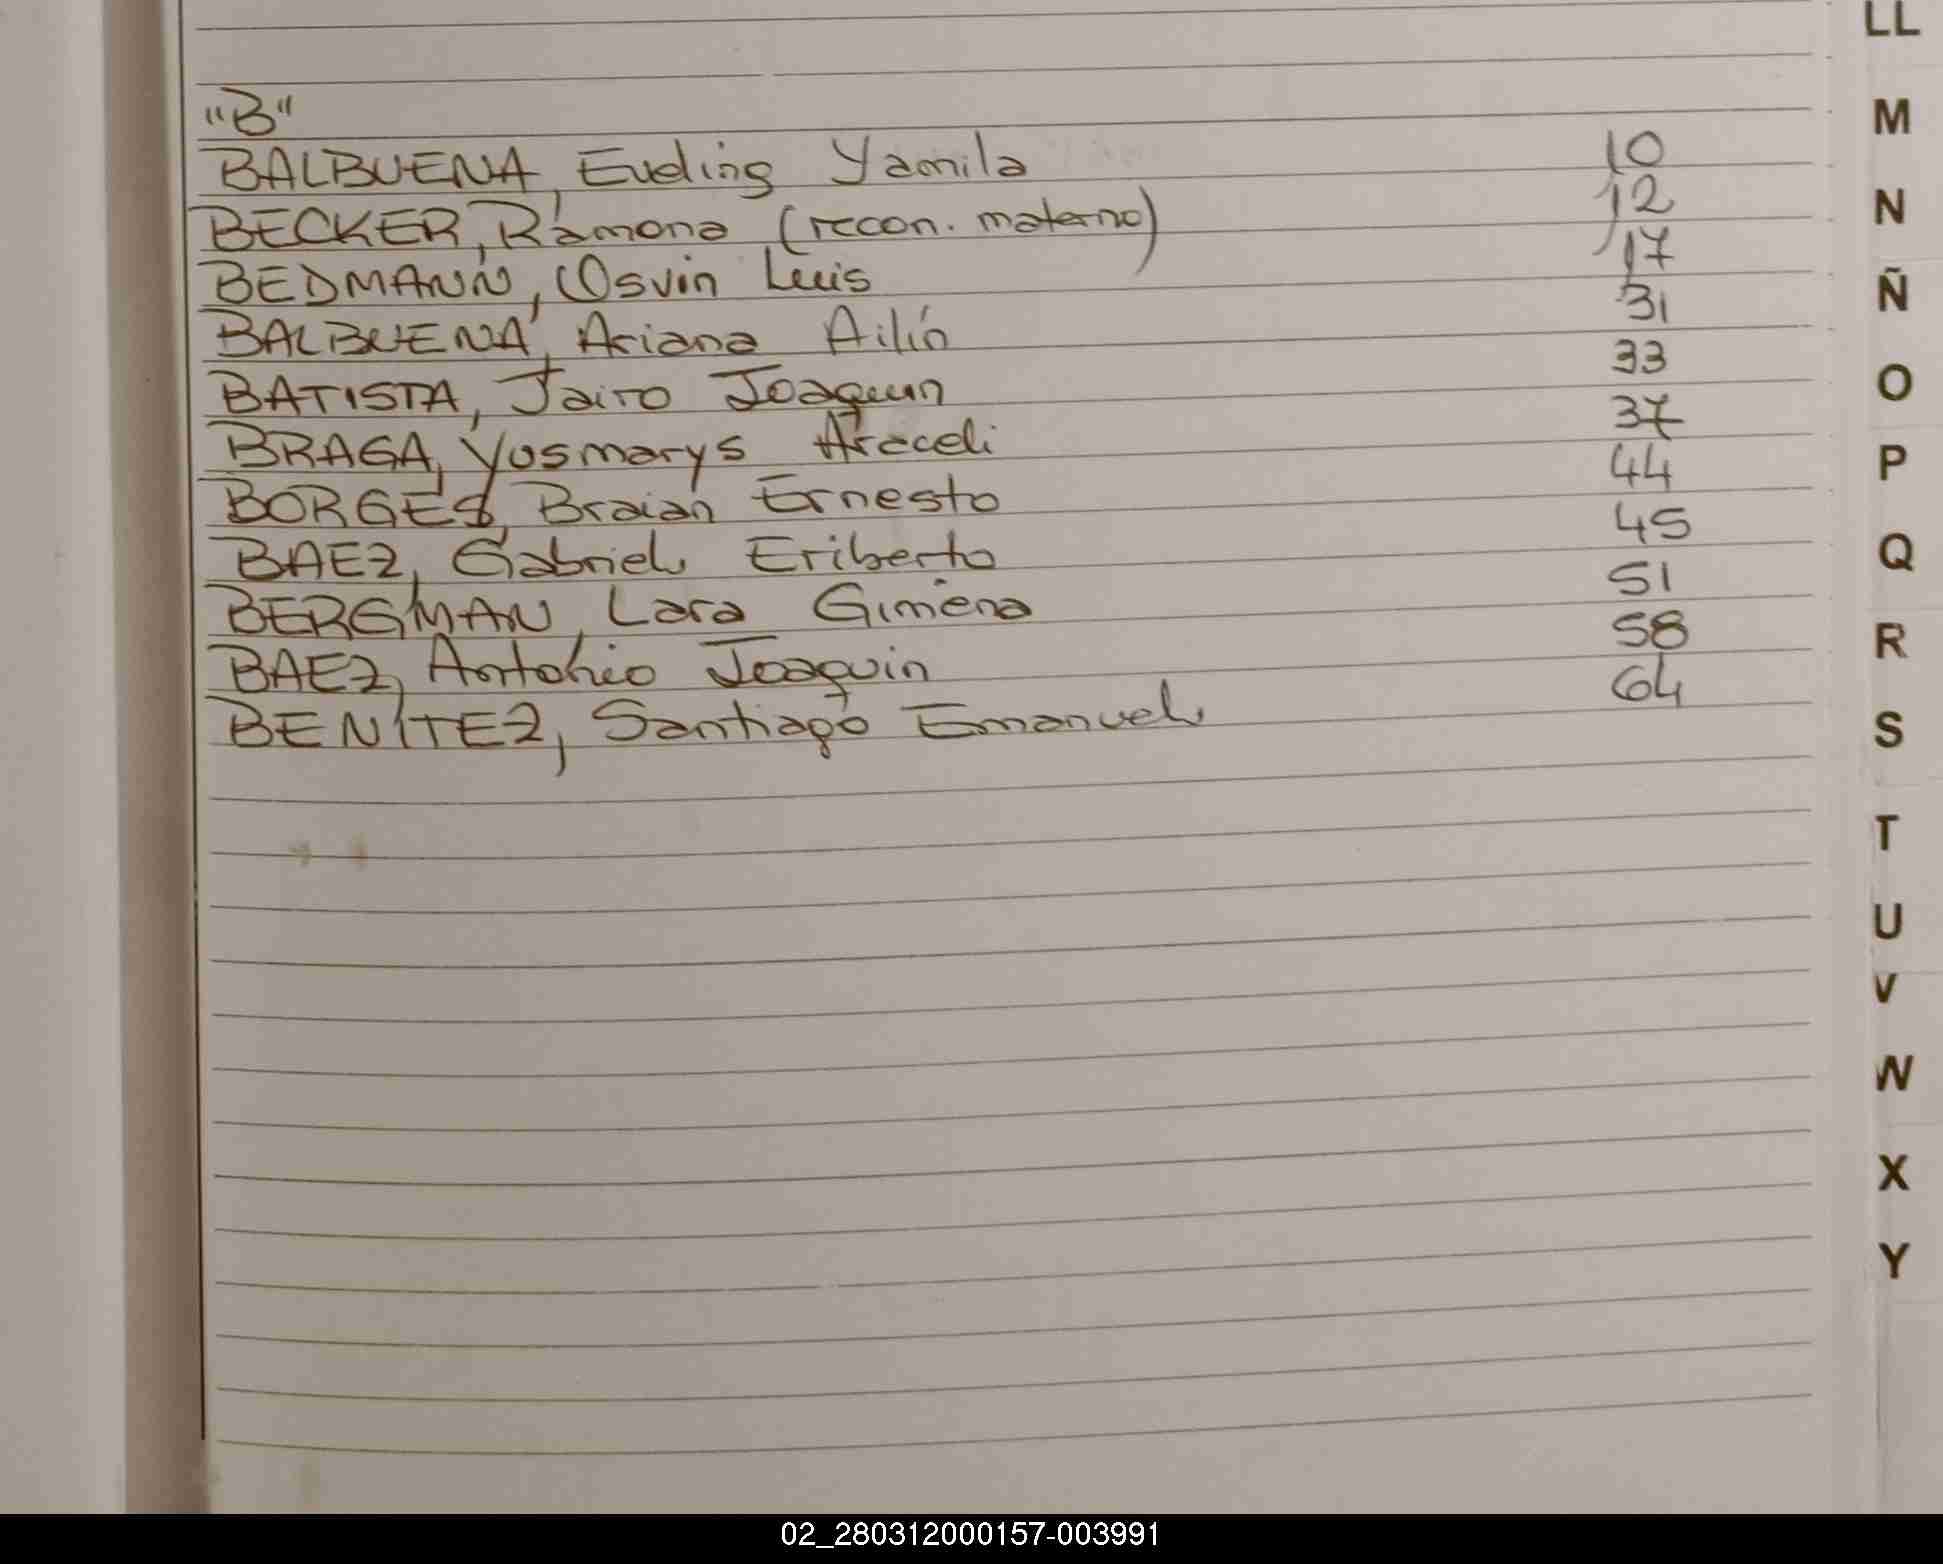 "B"
BALBUENA, Eveling Yamila 10
BECKER, Ramona (recon. materno) 12
BEDMANN, Osvin Luis 17
BALBUENA, Ariana Ailín 31
BATISTA, Jairo Joaquin 33
BRAGA, Yosmarys Araceli 37
BORGES, Braian Ernesto 44
BAEZ, Gabriel Eriberto 45
BERGMAN, Lara Gimena 51
BAEZ, Antonio Joaquin 58
BENITEZ, Santiago Emanuel 64
LL
M
N
Ñ
O
P
Q
R
S
T
U
V
W
X
Y
02_280312000157-003991